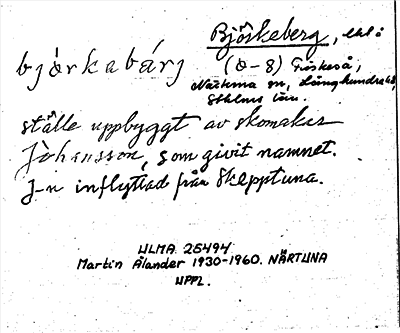 Björkeberg,
bjårkabárj (0-8) Fröskeså,
Närtuna sn, Långhundra hd,
Sthlms län.
ställe uppbyggt av skomaker
Johansson, som givit namnet.
J-n inflyttad från Skepptuna.
ULMA 25494
Martin Ålander 1930-1960. NÄRTUNA
UPPL.